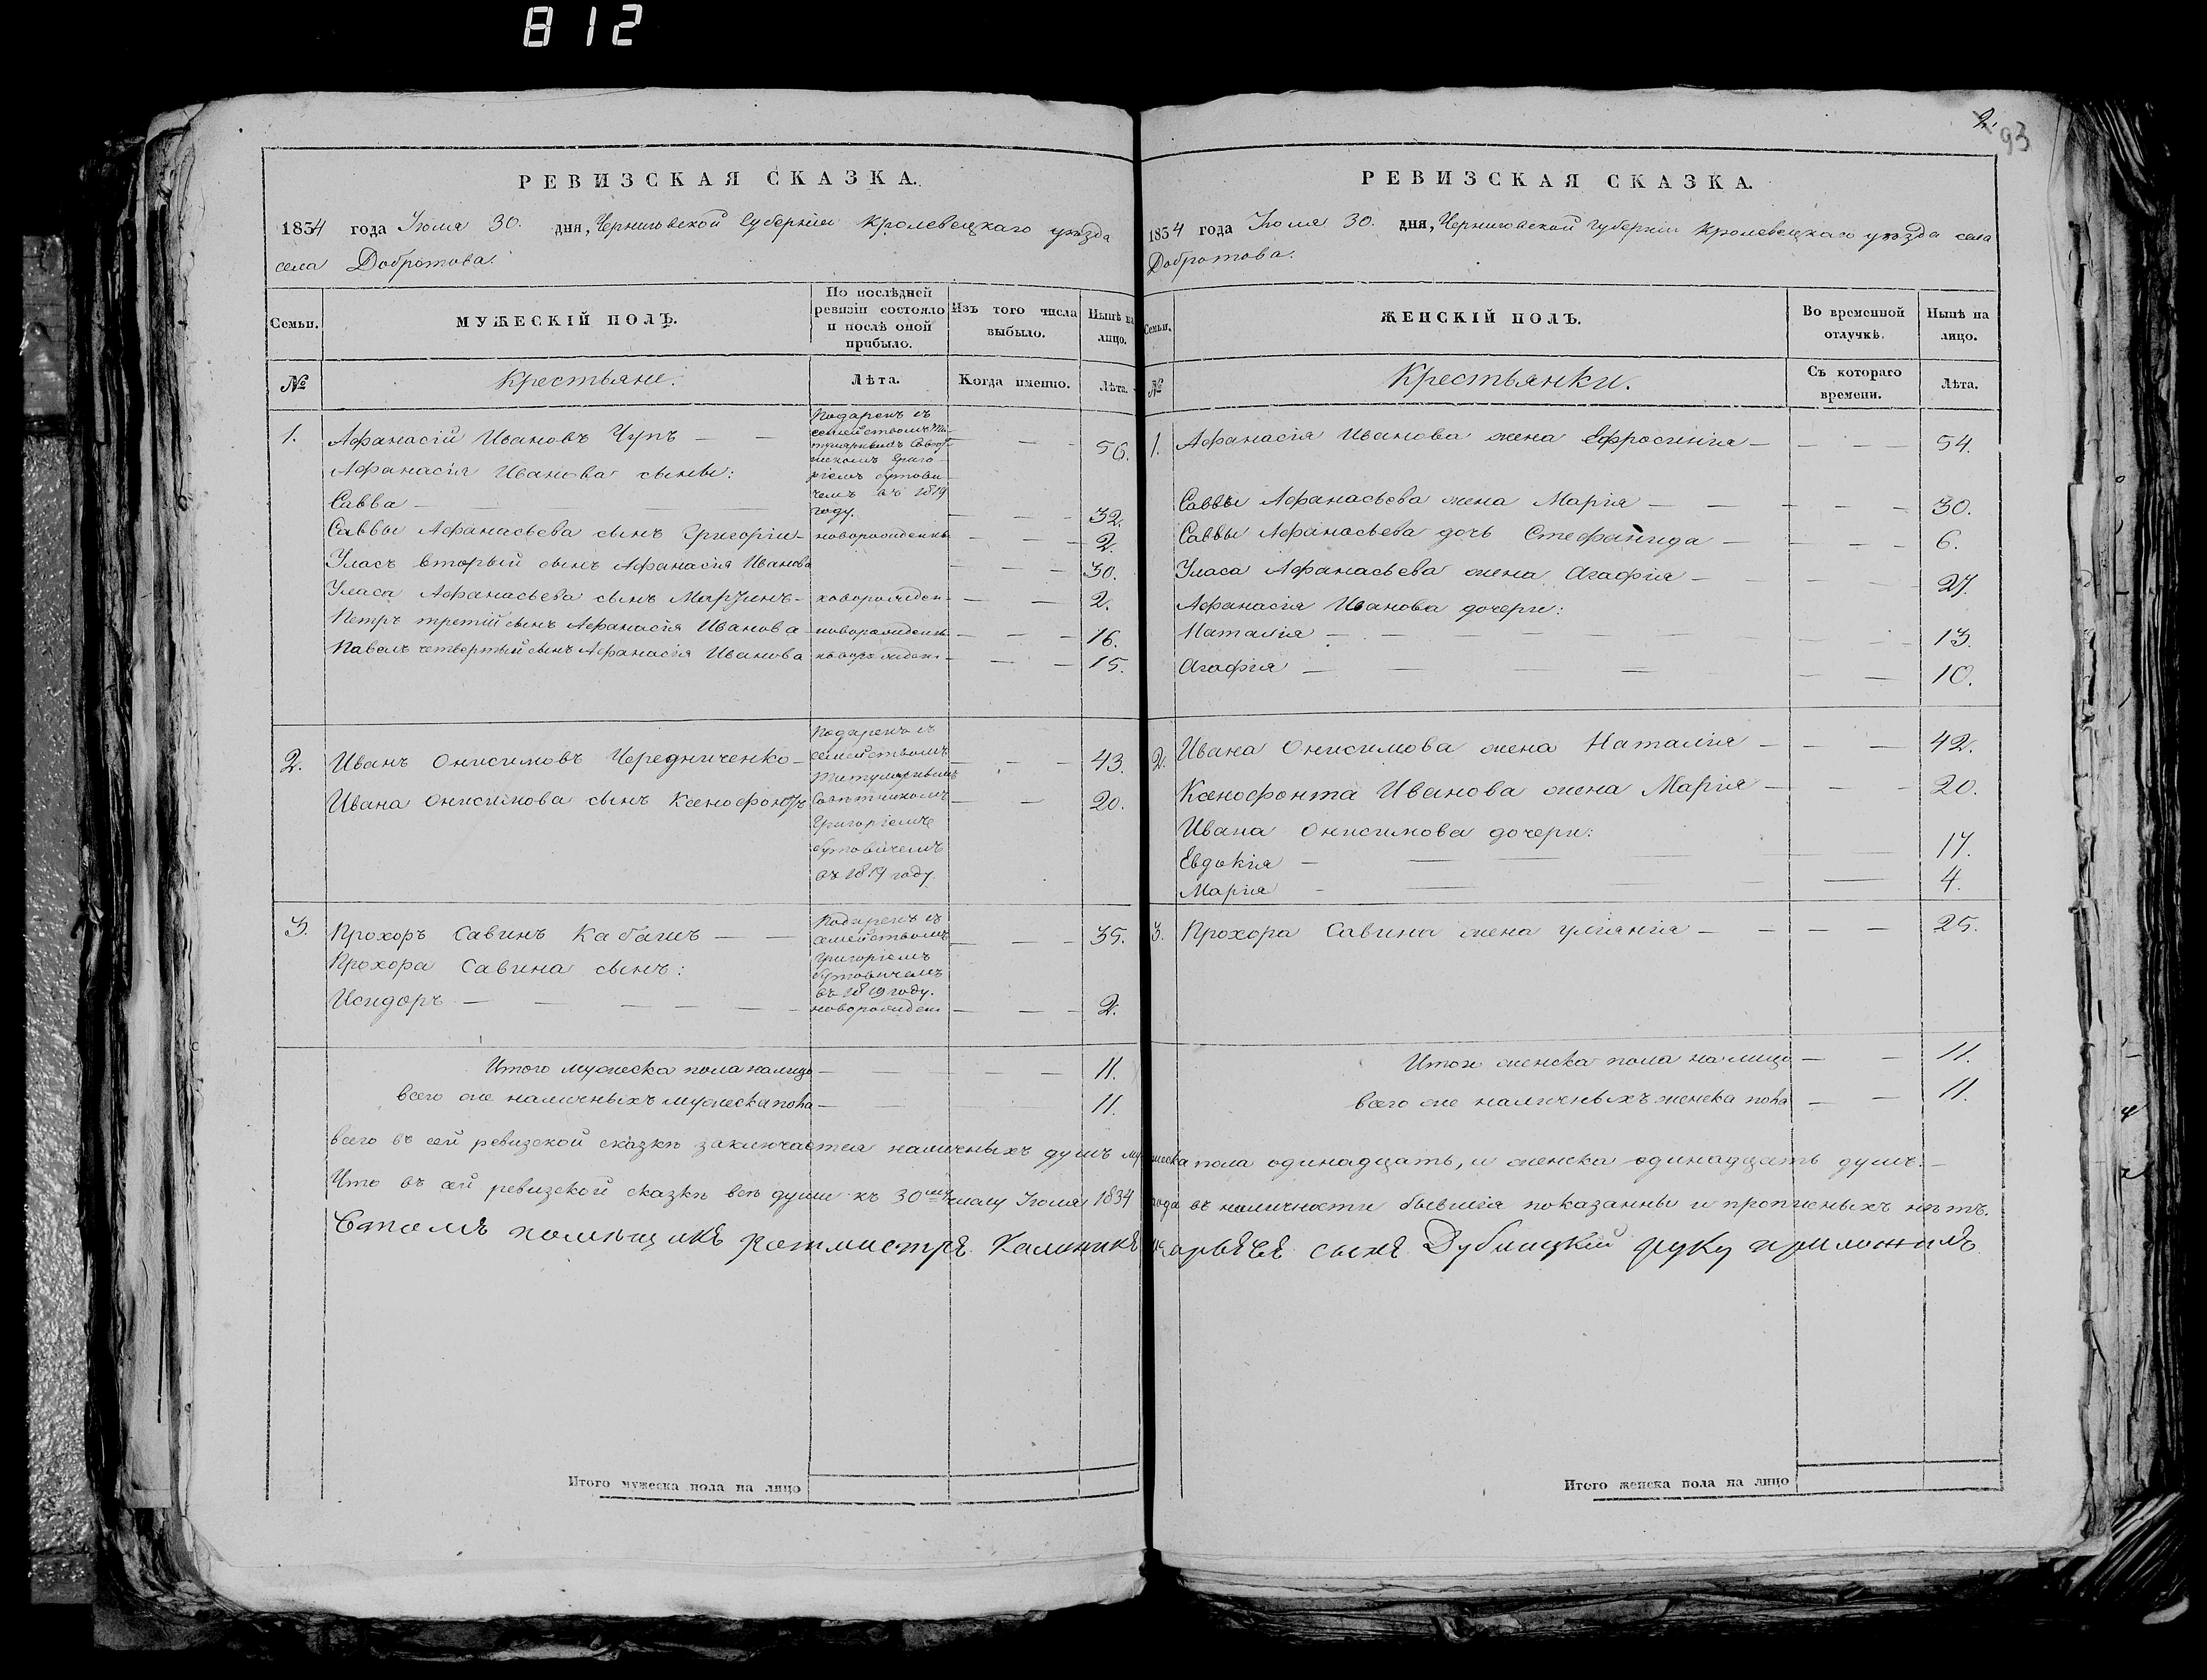 812
2.
93
РЕВИЗСКАЯ СКАЗКА.
1834 года Іюля 30. дня, Черниговской Губерніи Кролевецкаго уѣзда
села Добротова.
Семьи.
МУЖЕСКІЙ ПОЛЪ.
По послѣдней
ревизіи состояло
и послѣ оной
прибыло.
Изъ того числа
выбыло.
Нынѣ на
лицо.
№
Крестьяне.
Лѣта.
Когда именно.
Лѣта.
1.
Афанасій Ивановъ Чупъ
Подаренъ съ
семействомъ Ти-
тулярнымъ Совѣт-
никомъ Григо-
ріемъ
чемъ въ 1819
году.
56.
Афанасія Иванова сыны:
Савва
32.
Саввы Афанасьева сынъ Григорій
новорожденъ
2.
Уласъ вторый сынъ Афанасія Иванова
30.
Уласа Афанасьева сынъ Мартинъ
новорожден
2.
Петръ третій сынъ Афанасія Иванова
новорожденъ
16.
Павелъ четвертый сынъ Афанасія Иванова
новорожден
15.
2.
Иванъ Онисимовъ Чередниченко
Подаренъ съ
семействомъ
Титулярнымъ
Совѣтникомъ
Григоріемъ
въ 1819 году.
43.
Ивана Онисимова сынъ Ксенофонтъ
20.
3.
Прохоръ Савинъ Кабашъ
Подаренъ съ
семействомъ
Григоріемъ
въ 1819 году.
35.
Прохора Савина сынъ:
Исидоръ
новорожден
2.
Итого мужеска пола налицо
11.
всего же наличныхъ мужеска пола
11.
РЕВИЗСКАЯ СКАЗКА.
1834 года Іюля 30. дня, Черниговской Губерніи Кролевецкаго уѣзда села
Добротова.
Семьи.
ЖЕНСКІЙ ПОЛЪ.
Во временной
отлучкѣ.
Нынѣ на
лицо.
№
Крестьянки.
Съ котораго
времени.
Лѣта.
1. Афанасія Иванова жена Ефросинія 54.
Саввы Афанасьева жена Марія 30.
Саввы Афанасьева дочь Стефанида 6.
Уласа Афанасьева жена Агафія 27.
Афанасія Иванова дочери:
Наталія 13.
Агафія 10.
2. Ивана Онисимова жена Наталія 42.
Ксенофонта Иванова жена Марія 20.
Ивана Онисимова дочери:
Евдокія 17.
Марія 4.
3. Прохора Савина жена Уліянія 25.
Итого женска пола налицо 11.
всего же наличныхъ женска пола 11.
всего въ сей ревизской сказкѣ заключается наличныхъ душъ мужеска пола одинадцать, и женска одинадцать душъ.
Что въ сей ревизской сказкѣ всѣ души къ 30му числу Іюля 1834 года въ наличности бывшія показанны и прописныхъ нѣтъ.
помѣщикъ Ротмистръ Калиникъ сынъ Дублицкій руку приложилъ
Итого мужеска пола на лицо
Итого женска пола на лицо